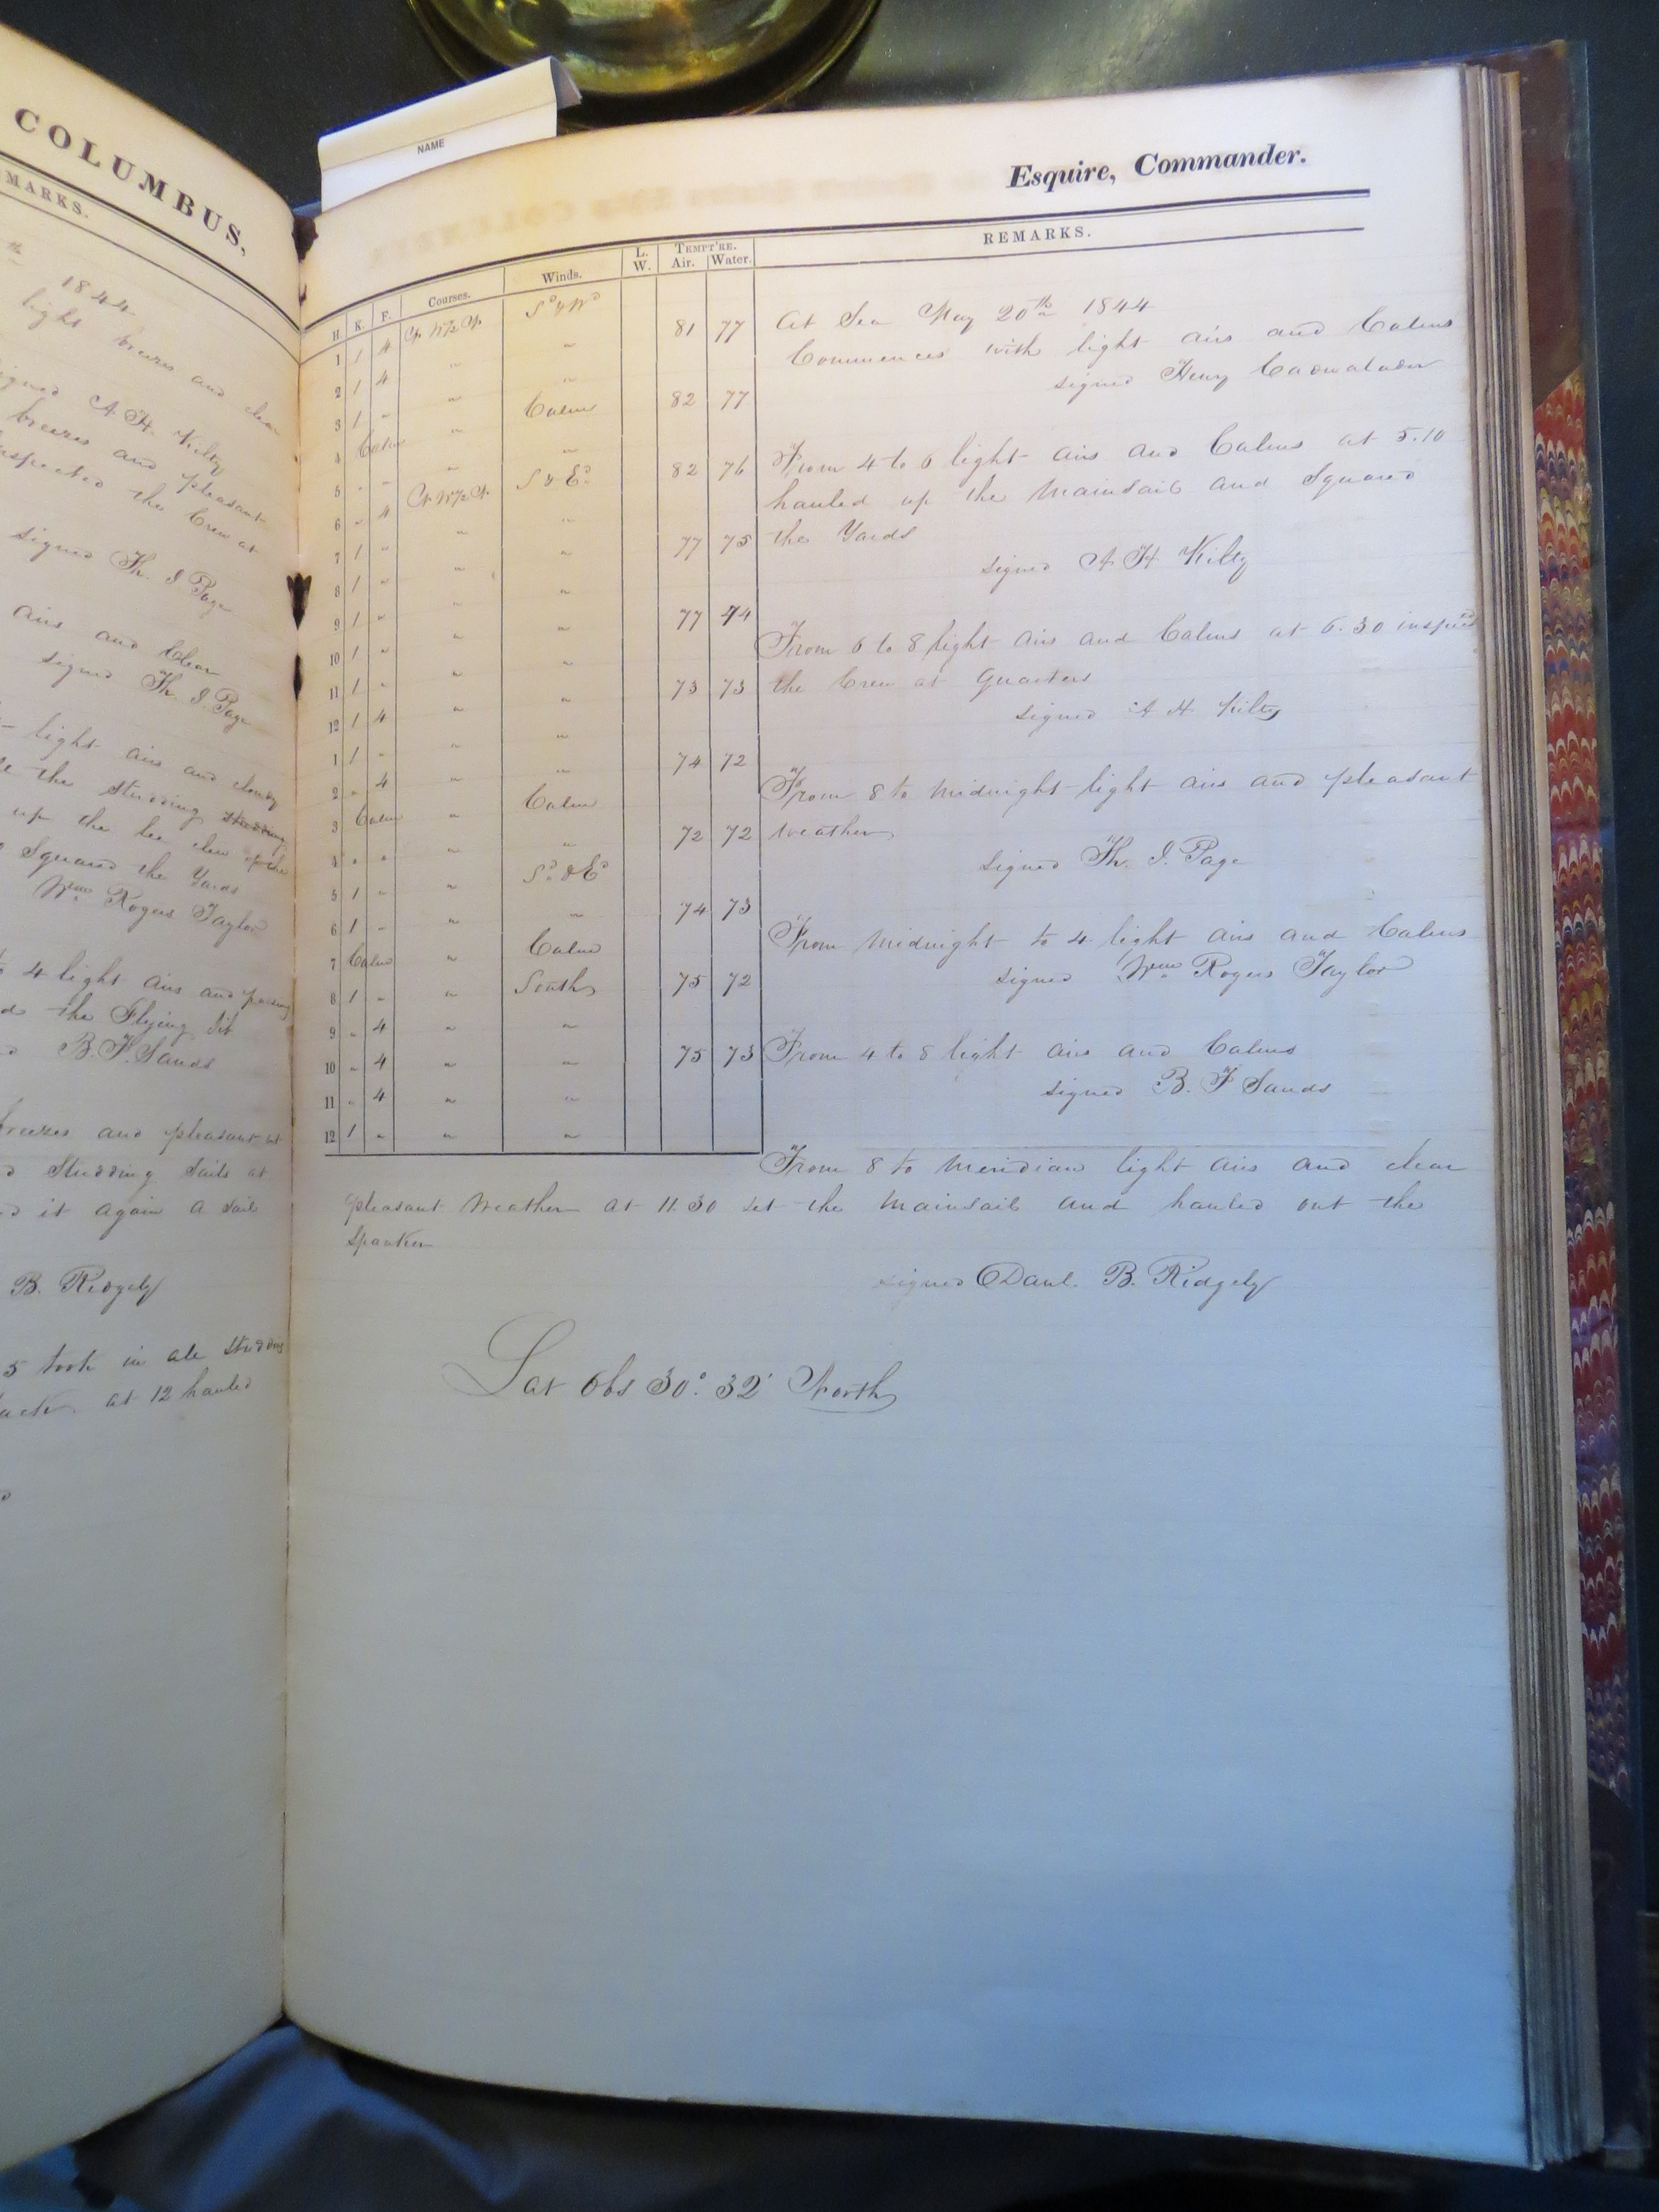 COLUMBUS,
MARKS.
th
1844
light breezes and clear
signed A. H. Kilty
breezes and pleasant
inspected the Crew at
signed Th. J. Page
airs and Clear
signed Th. J. Page
light airs and cloudy
the studding
up the lee clew of the
Squared the Yards
Wm Rogers Taylor
to 4 light airs and passing
the Flying Jib
B. F. Sands
breezes and pleasant at
Studding Sails at
it again a sail
B. Ridgely
5 took in all studding
at 12 hauled
NAME
Esquire, Commander.
H. K. F. Courses. Winds. L. W. TEMPT'RE. Air. Water. REMARKS.
1 1 4 S.d & W.d 81 77
2 1 4 " "
3 1 " " Calm 82 77
4 Calm " "
5 " " " S & E.d 82 76
6 " 4 "
7 1 " " " 77 75
8 1 " " "
9 1 " " " 77 74
10 1 " " "
11 1 " " " 73 73
12 1 4 " "
1 1 " " " 74 72
2 " 4 " Calm
3 Calm " " 72 72
4 " " " S.d & E.d
5 1 " " " 74 73
6 1 " " Calm
7 Calm " South 75 72
8 1 " " "
9 " 4 " " 75 73
10 " 4 " "
11 " 4 " "
12 1 " " "
At Sea May 20th 1844
Commences with light airs and Calms
signed Henry Cadwalader
From 4 to 6 light airs and Calms at 5.10
hauled up the Mainsail and Squared
the Yards
signed A H Kilty
From 6 to 8 light airs and Calms at 6.30 inspected
the Crew at Quarters
signed A H Kilty
From 8 to Midnight light airs and pleasant
weather
signed Th. J. Page
From Midnight to 4 light airs and Calms
signed Wm Rogers Taylor
From 4 to 8 light airs and Calms
signed B. F Sands
From 8 to Meridian light airs and clear
pleasant Weather at 11.30 set the Mainsail and hauled out the
Spanker
signed Danl. B. Ridgely
Lat Obs 30° 32' North